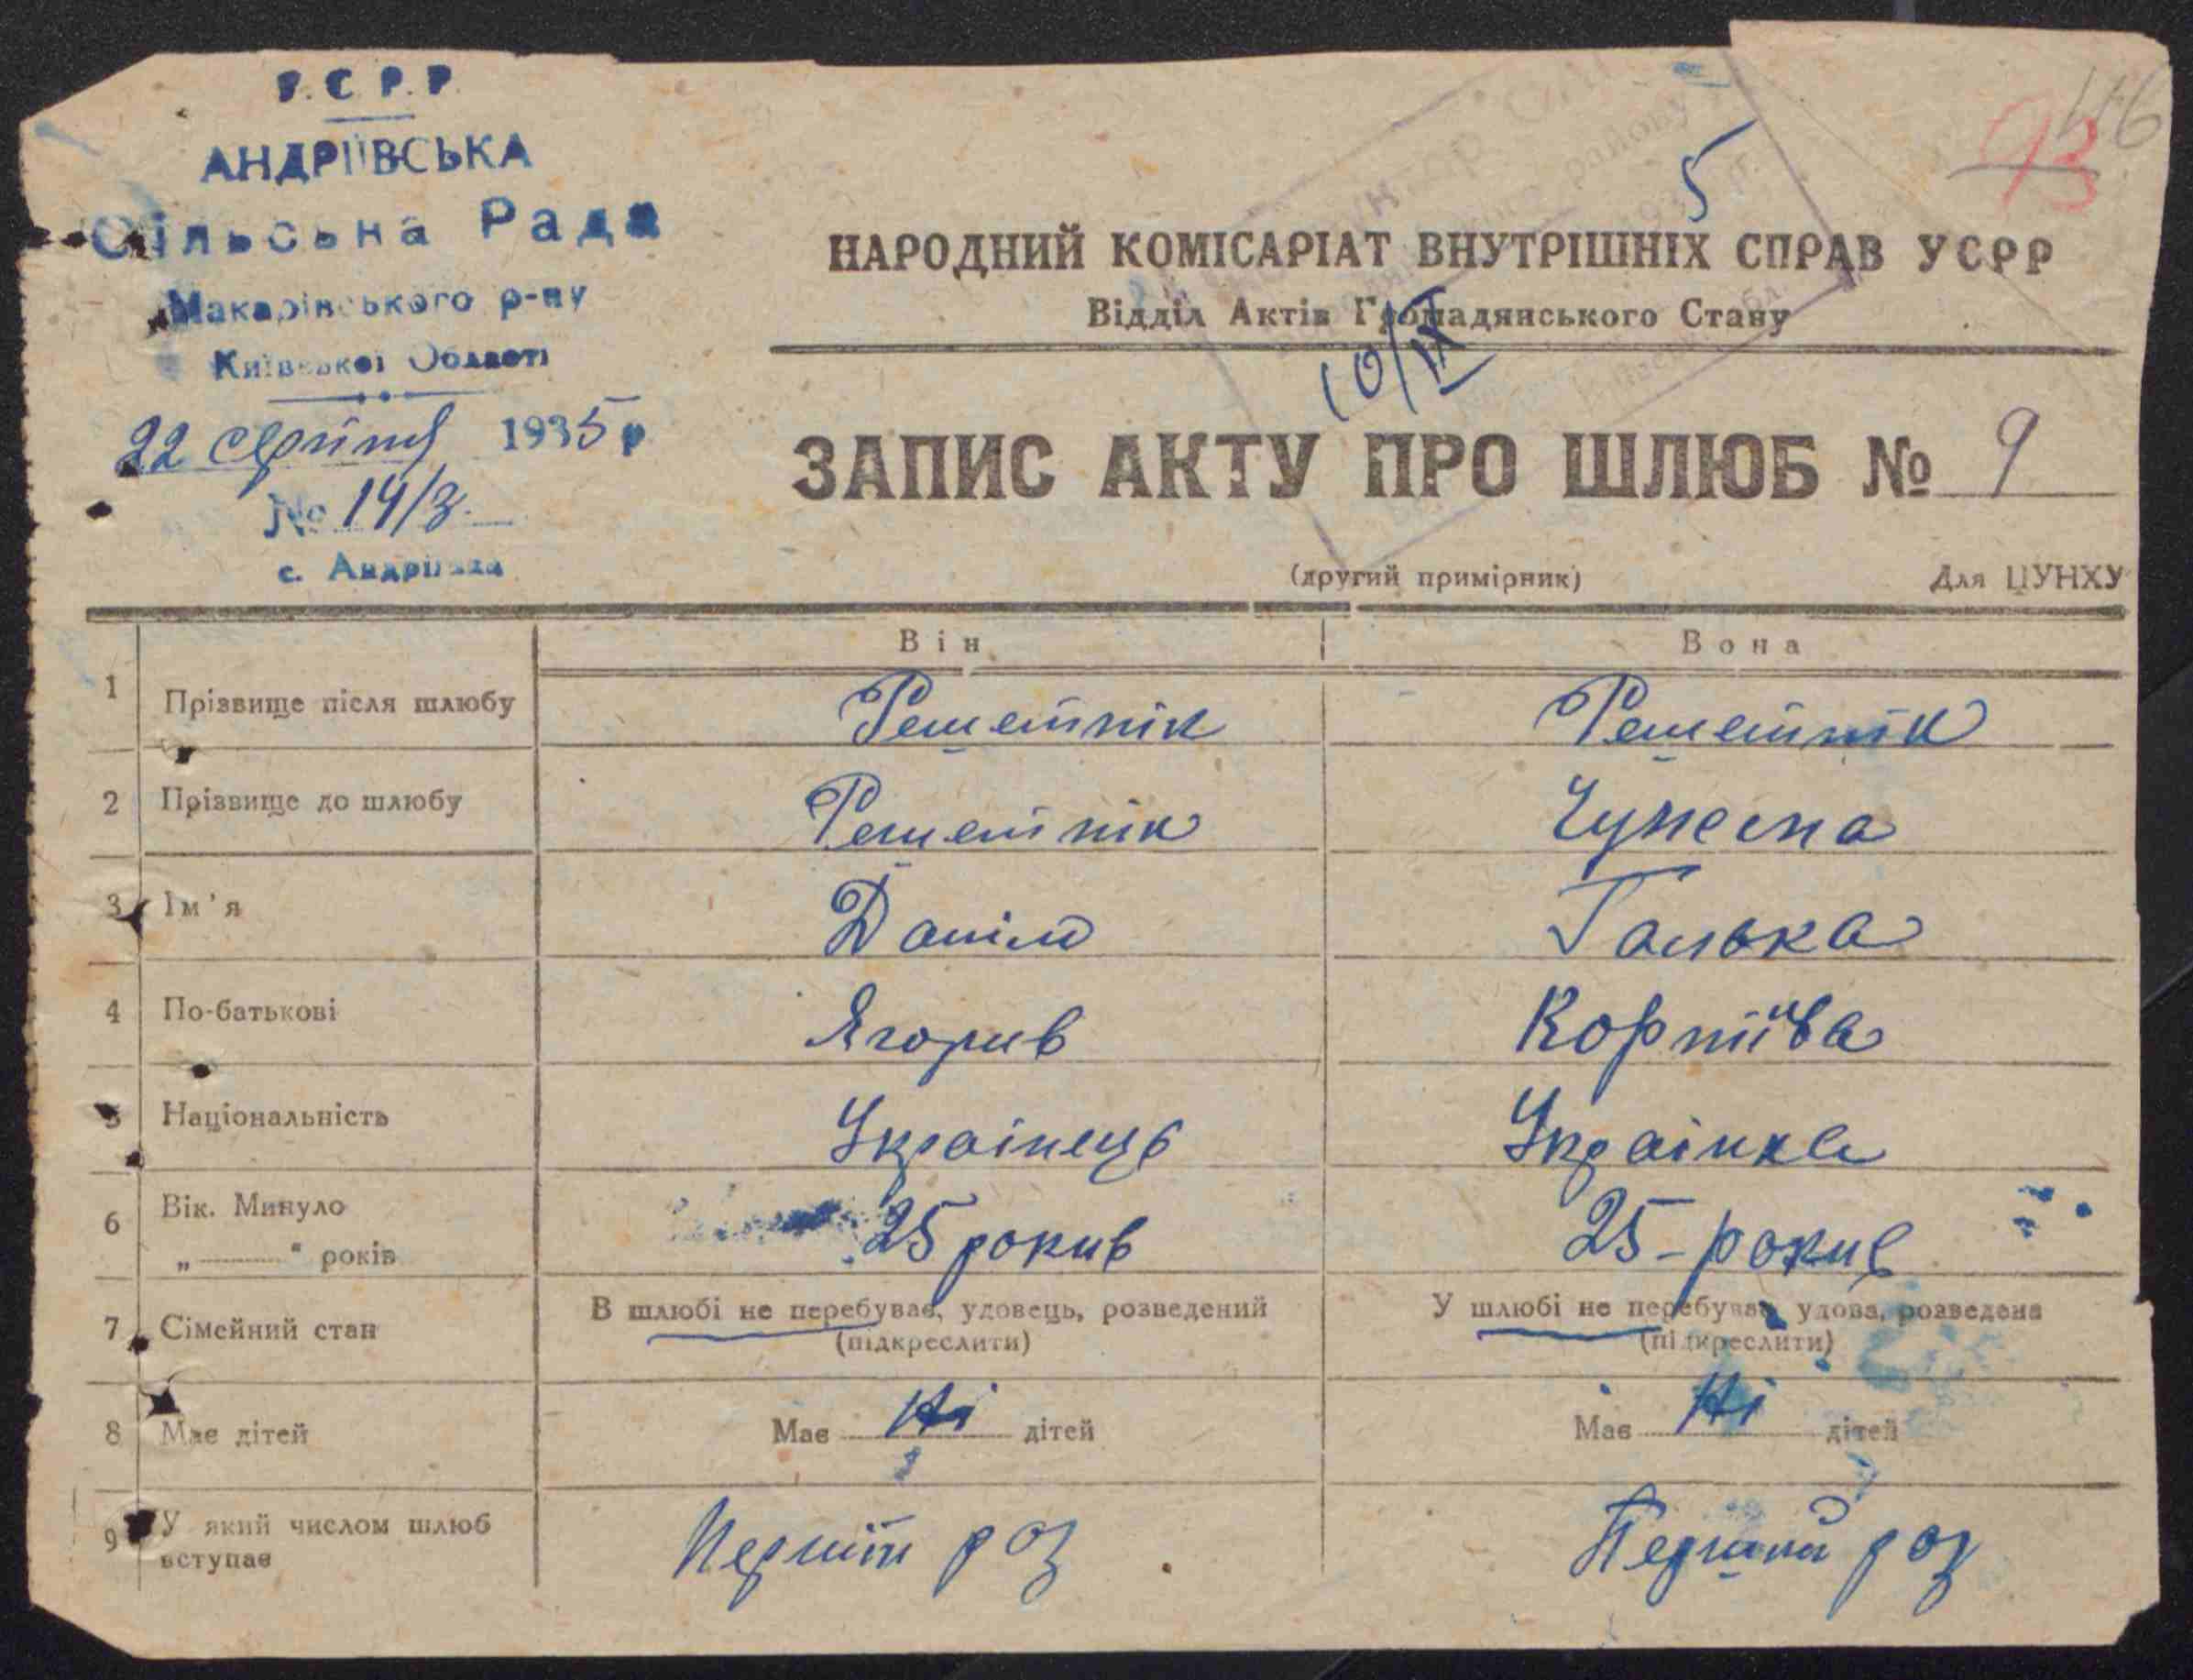 У.С.Р.Р.
АНДРІЇВСЬКА
Сільська Рада
Макарівського р-ну
Київської Області
22 серпня 1935 р
№ 14/3.
с. Андріївка
46
93
5
НАРОДНИЙ КОМІСАРІАТ ВНУТРІШНІХ СПРАВ УСРР
Відділ Актів Громадянського Стану
10/IX
ЗАПИС АКТУ ПРО ШЛЮБ № 9
(другий примірник) Для ЦУНХУ
Він Вона
1 Прізвище після шлюбу Решетнік Решетнік
2 Прізвище до шлюбу Решетнік
3 Ім'я Даніло Галька
4 По-батькові Ягорив Корніїва
5 Національність Українець Українка
6 Вік. Минуло
„ “ років 25 рокив 25-рокив
7 Сімейний стан В шлюбі не перебував, удовець, розведений У шлюбі не перебувала удова, розведена
(підкреслити) (підкреслити)
8 Має дітей Має Ні дітей Має Ні дітей
9 У який числом шлюб
вступає Перший раз Перший раз